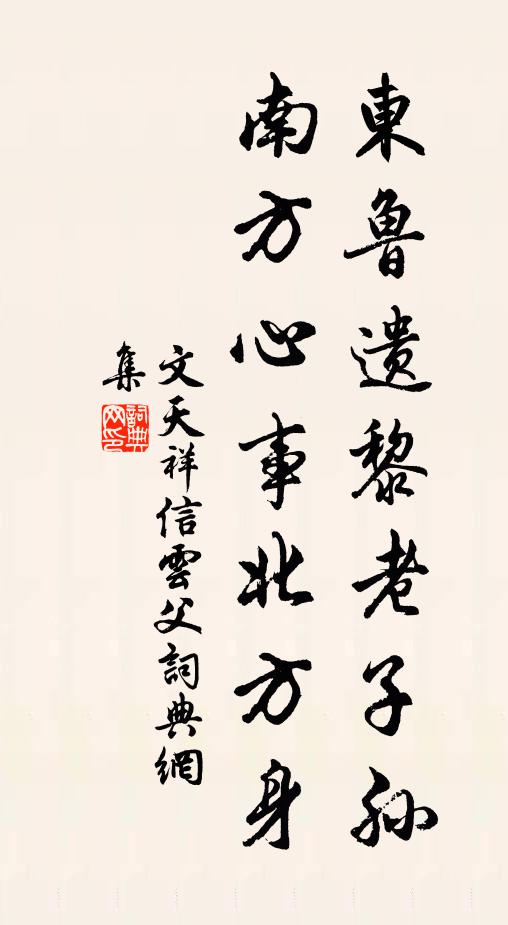 東魯遺黎老子孫
南方心事北方身
文天祥信雲父詞典網
集
詞典網印